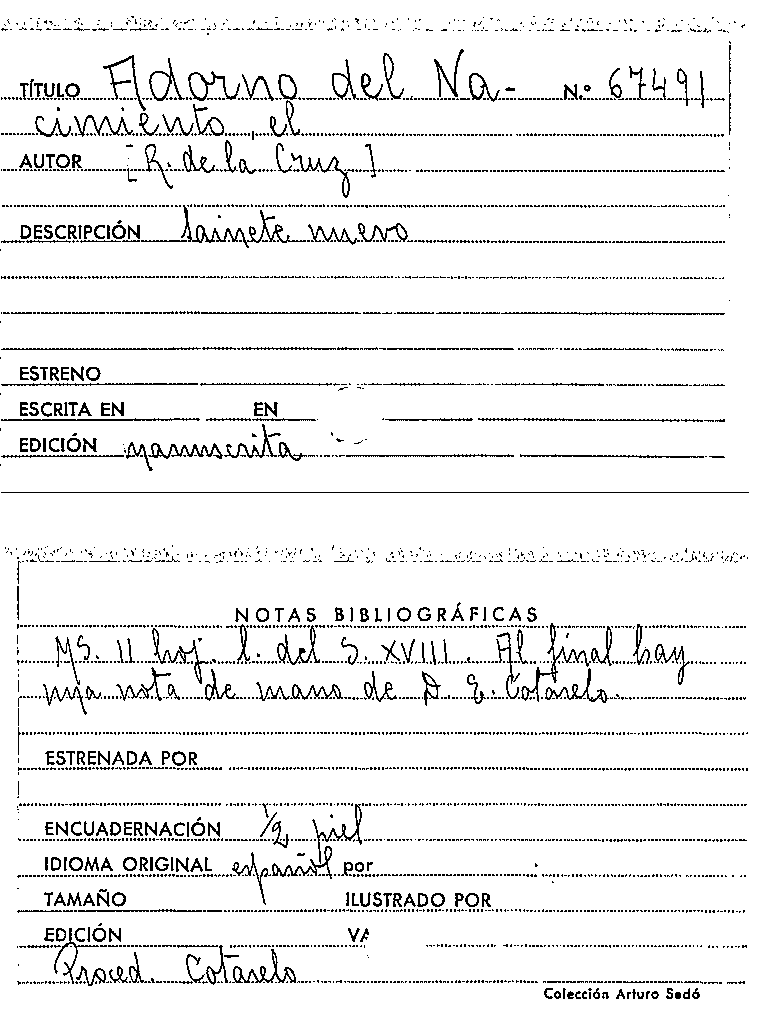 TÍTULO Adorno del Na- N.º 67491
cimiento, el
AUTOR [R. de la Cruz]
DESCRIPCIÓN Sainete nuevo
ESTRENO
ESCRITA EN EN
EDICIÓN manuscrita
NOTAS BIBLIOGRÁFICAS
MS. 11 hoj. l. del S. XVIII. Al final hay
una nota de mano de D. E. Cotarelo.
ESTRENADA POR
ENCUADERNACIÓN 1/2 piel
IDIOMA ORIGINAL español por
TAMAÑO ILUSTRADO POR
EDICIÓN
Proced. Cotarelo
Colección Arturo Sedó